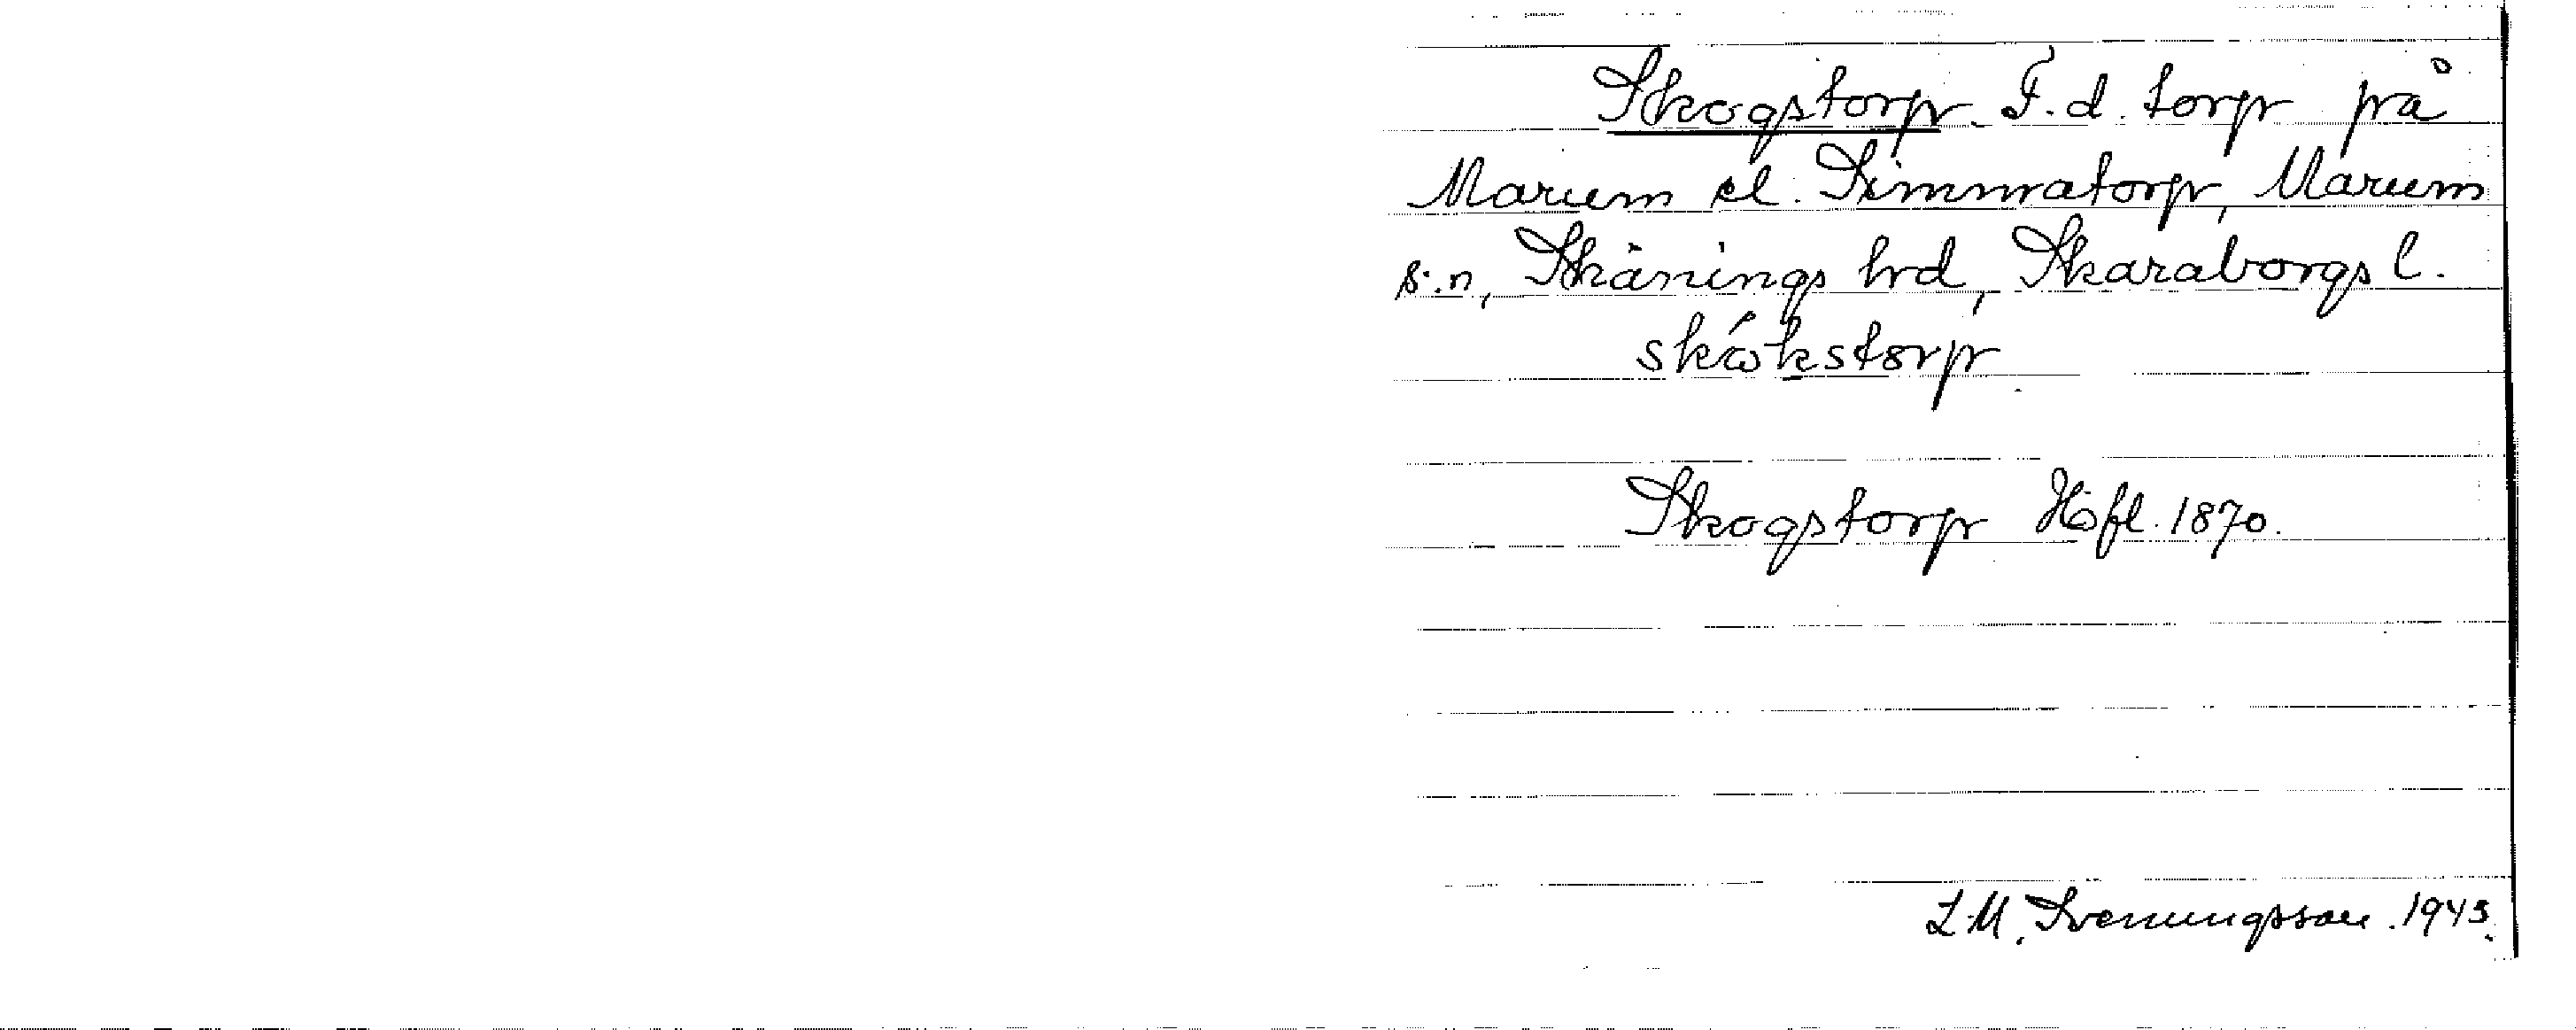 Skogstorp. F.d. torp på
Marum el. Simmatorp, Marum
s:n, Skånings hrd, Skaraborgs l.
skókstorp
Skogstorp Hfl. 1870.
L.M. Svenungsson. 1945.